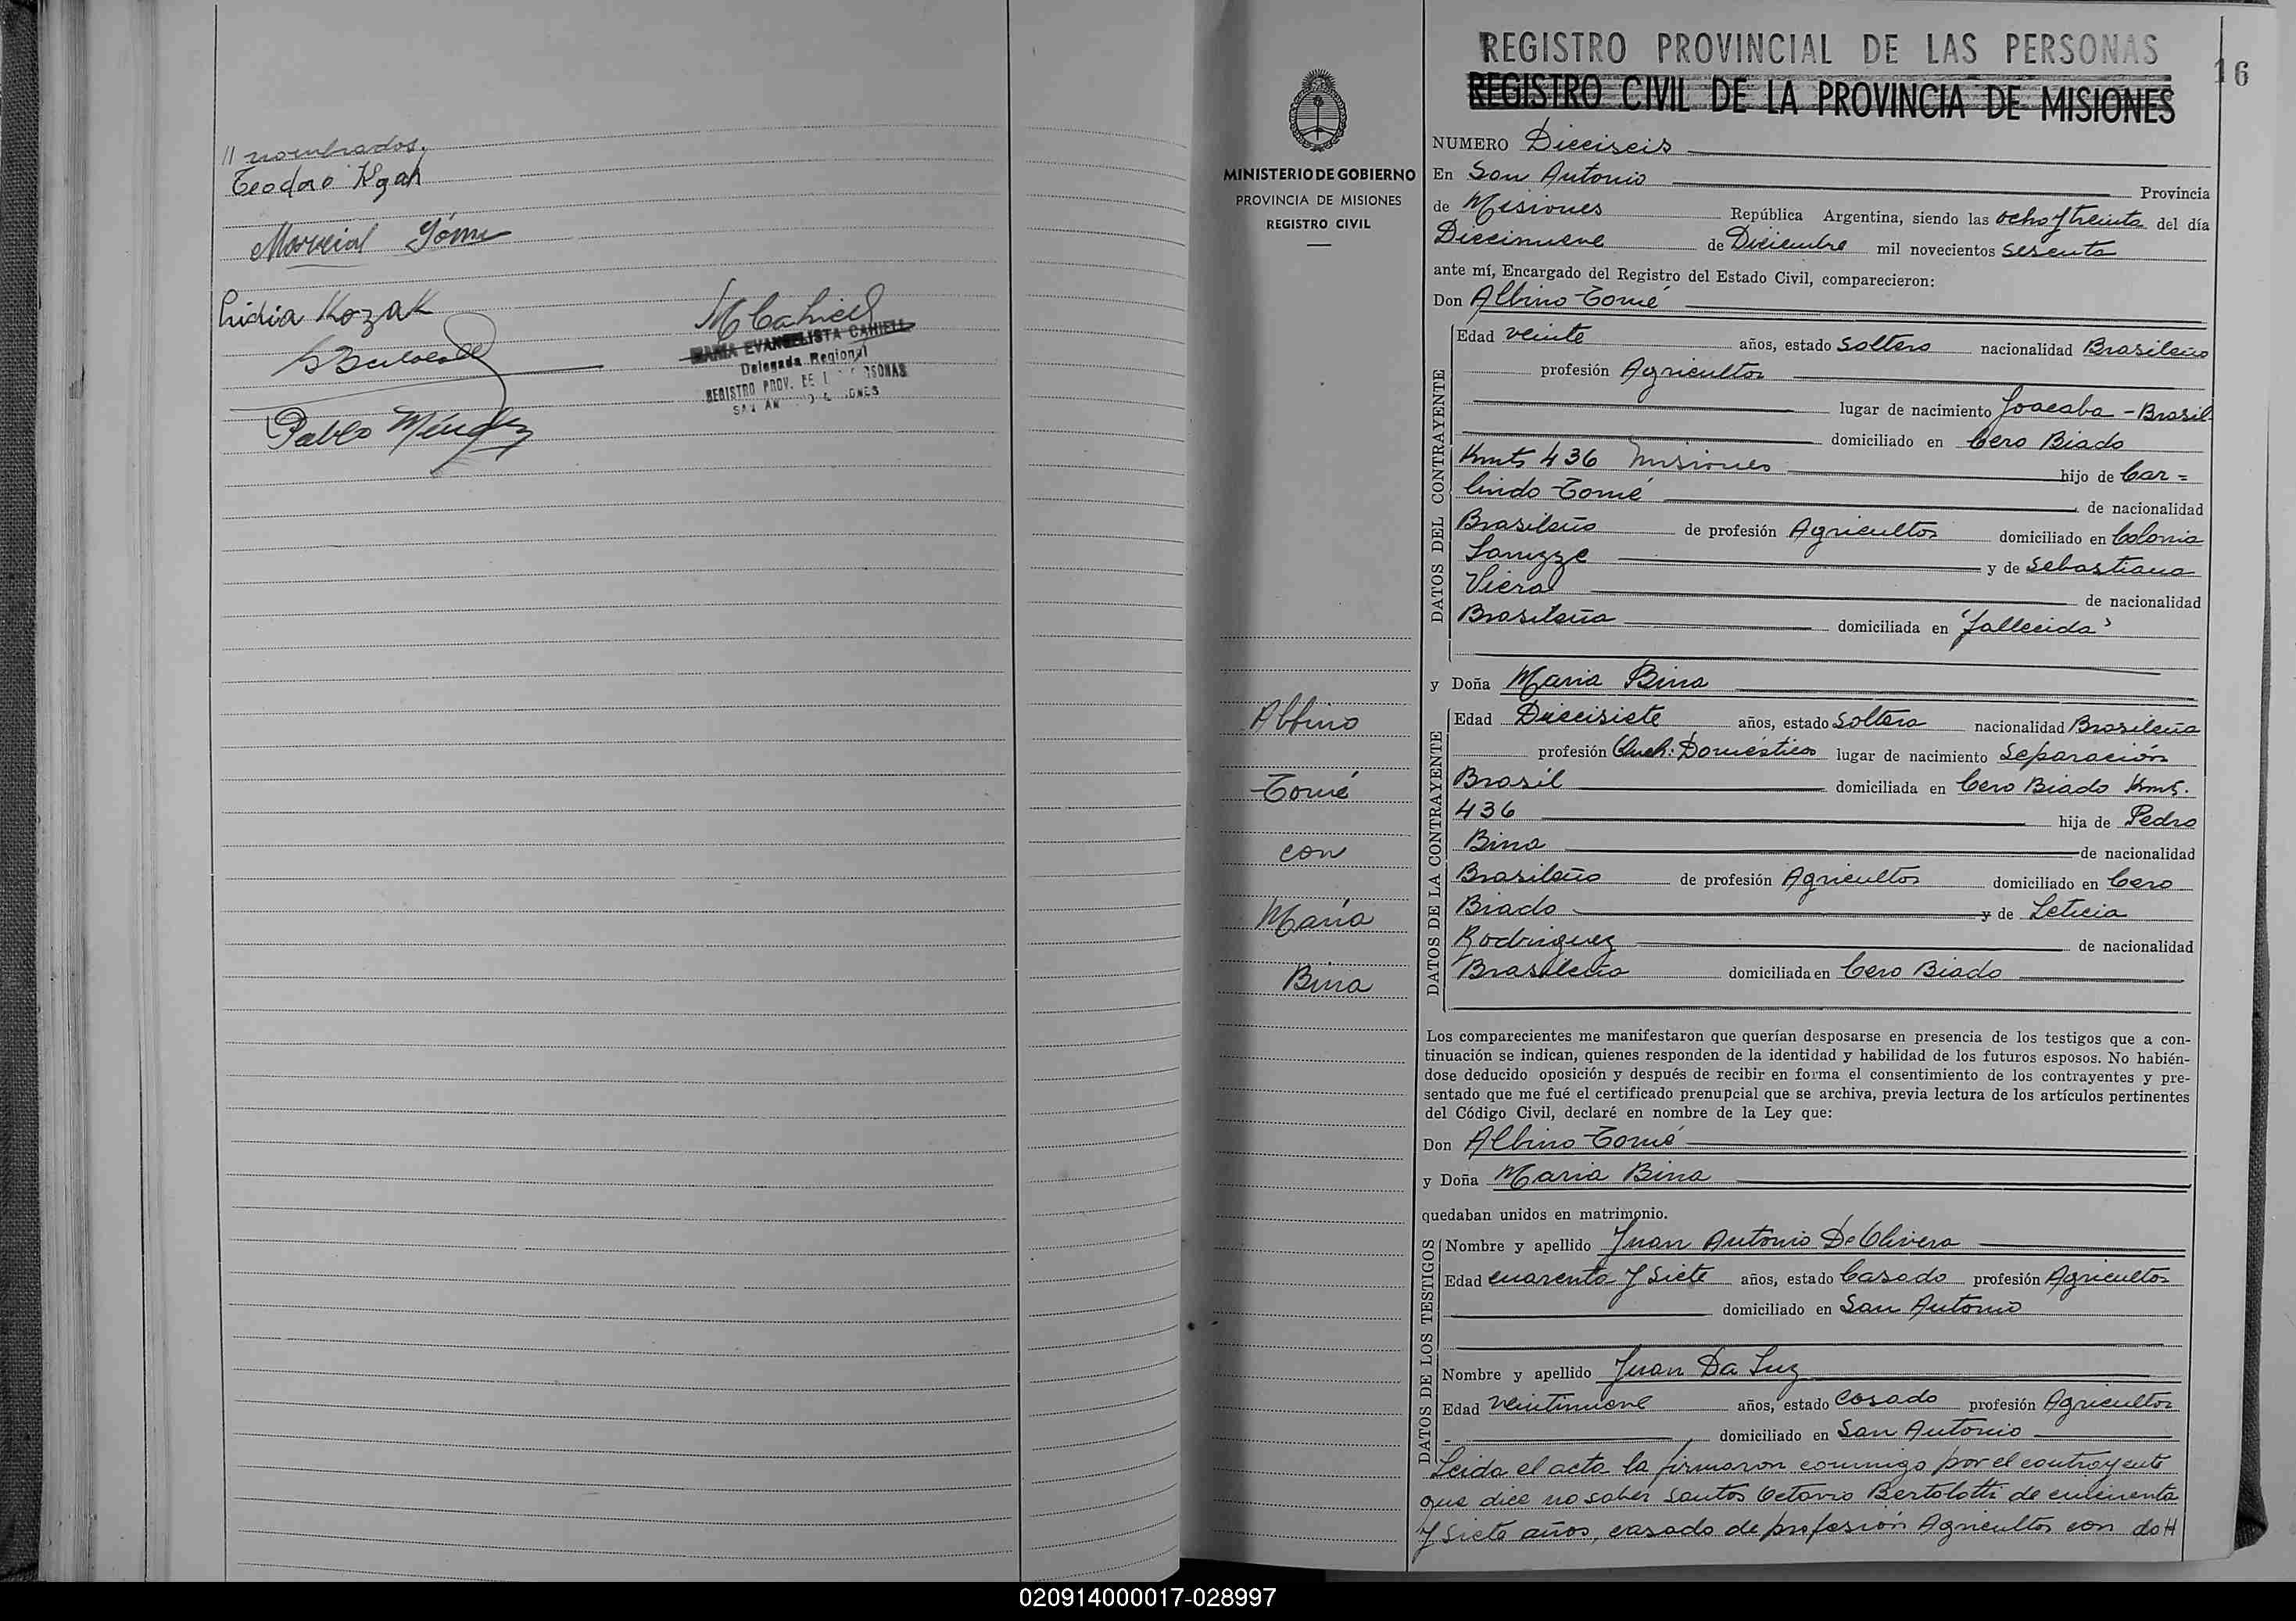 // nombrados.
Teodoro
Marcial Gómez
Lidia Kozak
Pablo Méndez
MARIA EVANGELISTA CAHIELL
Delegada Regional
REGISTRO PROV. DE
MINISTERIO DE GOBIERNO
PROVINCIA DE MISIONES
REGISTRO CIVIL
Albino
Tomé
con
María
Bina
REGISTRO PROVINCIAL DE LAS PERSONAS
16
REGISTRO CIVIL DE LA PROVINCIA DE MISIONES
NUMERO Dieciseis
En San Antonio Provincia
de Misiones República Argentina, siendo las ocho y treinta del día
Diecinueve de Diciembre mil novecientos sesenta
ante mí, Encargado del Registro del Estado Civil, comparecieron:
Don Albino Tomé
DATOS DEL CONTRAYENTE
Edad veinte años, estado soltero nacionalidad Brasileño
profesión Agricultor
lugar de nacimiento Joacaba - Brasil
domiciliado en Cero Biado
Kmts 436 Misiones hijo de Car=
lindo Tomé de nacionalidad
Brasileño de profesión Agricultor domiciliado en Colonia
y de Sebastiana
Viera de nacionalidad
Brasileña domiciliada en "fallecida"
y Doña Maria Bina
DATOS DE LA CONTRAYENTE
Edad Diecisiete años, estado Soltera nacionalidad Brasileña
profesión Queh. Domésticos lugar de nacimiento Separación
Brasil domiciliada en Cero Biado Kmts.
436 hija de Pedro
Bina de nacionalidad
Brasileño de profesión Agricultor domiciliado en Cero
Biado y de Leticia
Rodriguez de nacionalidad
Brasileña domiciliada en Cero Biado
Los comparecientes me manifestaron que querían desposarse en presencia de los testigos que a con-
tinuación se indican, quienes responden de la identidad y habilidad de los futuros esposos. No habién-
dose deducido oposición y después de recibir en forma el consentimiento de los contrayentes y pre-
sentado que me fué el certificado prenupcial que se archiva, previa lectura de los artículos pertinentes
del Código Civil, declaré en nombre de la Ley que:
Don Albino Tomé
y Doña Maria Bina
quedaban unidos en matrimonio.
DATOS DE LOS TESTIGOS
Nombre y apellido Juan Antonio De Olivera
Edad cuarenta y siete años, estado Casado profesión Agricultor
domiciliado en San Antonio
Nombre y apellido Juan Da Luz
Edad veintinueve años, estado casado profesión Agricultor
domiciliado en San Antonio
Leida el acta la firmaron conmigo por el contrayente
que dice no saber Santos Octavio Bertolotti de cincuenta
y siete años, casado de profesión Agricultor con do//
020914000017-028997